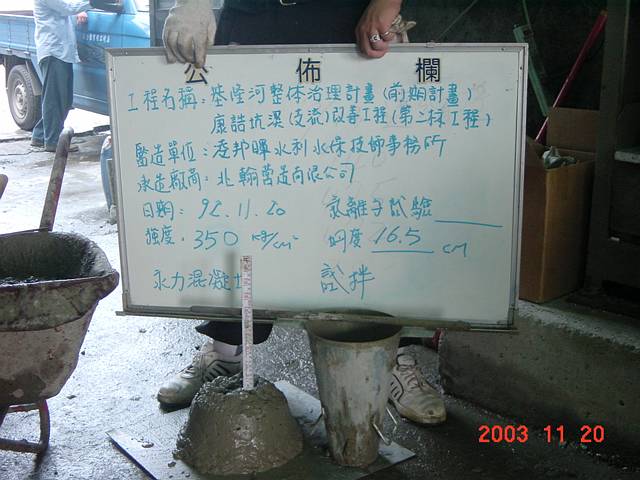 公佈欄
工程名稱：基隆河整体治理計畫(前期計畫)
康誥坑溪(支流)改善工程(第二標工程)
監造單位：彥邦暉水利水保技師事務所
承造廠商：北翰營造有限公司
日期：92.11.20 氯離子試驗
強度：350 kg/cm² 坍度 16.5 cm
水力混凝土 試拌
2003 11 20